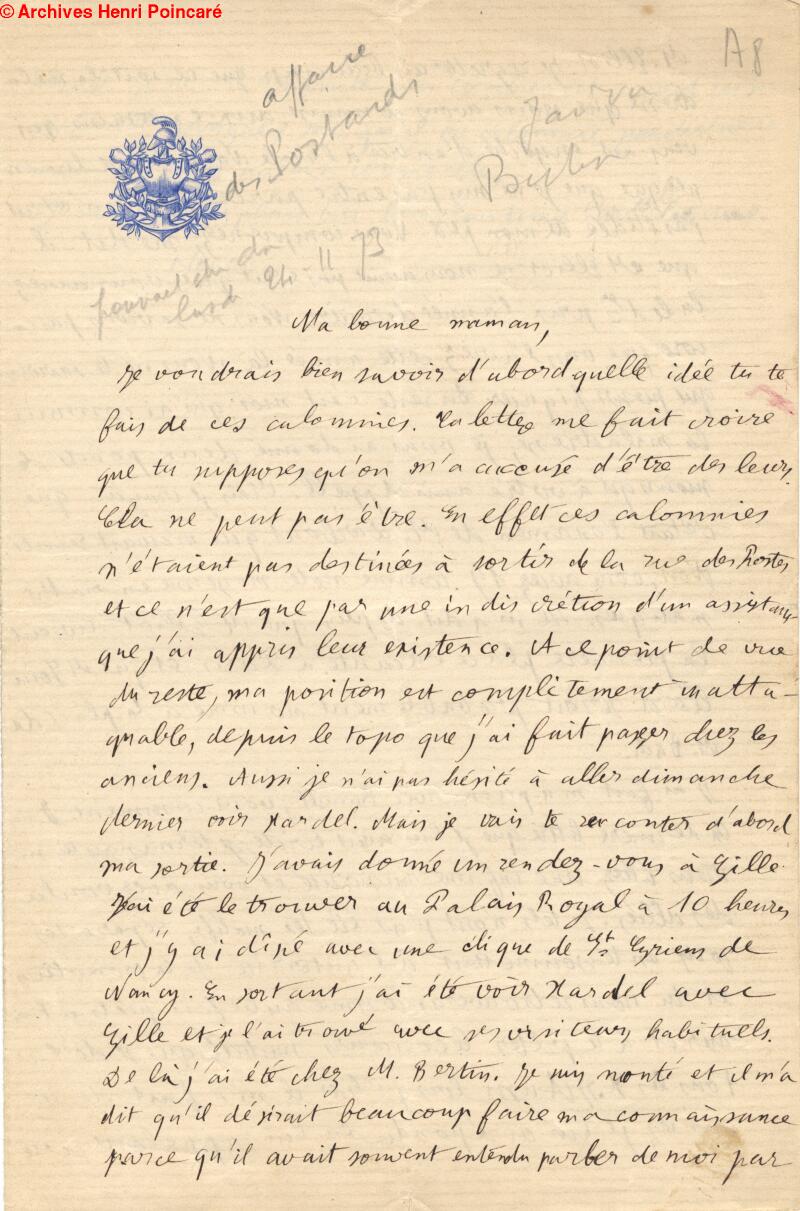 © Archives Henri Poincaré
A8
affaire
des Postards
24 II 73
Ma bonne maman,
Je voudrais bien savoir d'abord quelle idée tu te
fais de ces calomnies. Ta lettre me fait croire
que tu supposes qu'on m'a accusé d'être des leurs.
Cela ne peut pas être. En effet ces calomnies
n'étaient pas destinées à sortir de la rue des Postes
et ce n'est que par une indiscrétion d'un
que j'ai appris leur existence. A ce point de vue
du reste, ma position est complètement inatta-
quable, depuis le topo que j'ai fait passer chez les
anciens. Aussi je n'ai pas hésité à aller dimanche
dernier voir Hardel. Mais je vais te raconter d'abord
ma sortie. J'avais donné un rendez-vous à Gille
J'ai été le trouver au Palais Royal à 10 heures
et j'y ai dîné avec une clique de Sts Cyriens de
Nancy. En sortant j'ai été voir Hardel avec
Gille et je l'ai trouvé avec ses visiteurs habituels.
De là j'ai été chez M. Bertin. Je suis monté et il m'a
dit qu'il désirait beaucoup faire ma connaissance
parce qu'il avait souvent entendu parler de moi par